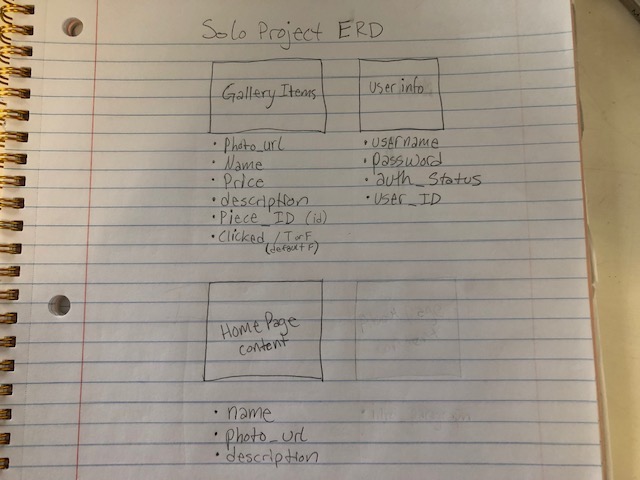 Solo Project ERD
Gallery Items
• Photo_url
• Name
• Price
• description
• Piece_ID (id)
• Clicked / T or F
(default F)
User info
• username
• password
• auth_status
• user_ID
Home Page
content
• name
• photo_url
• description